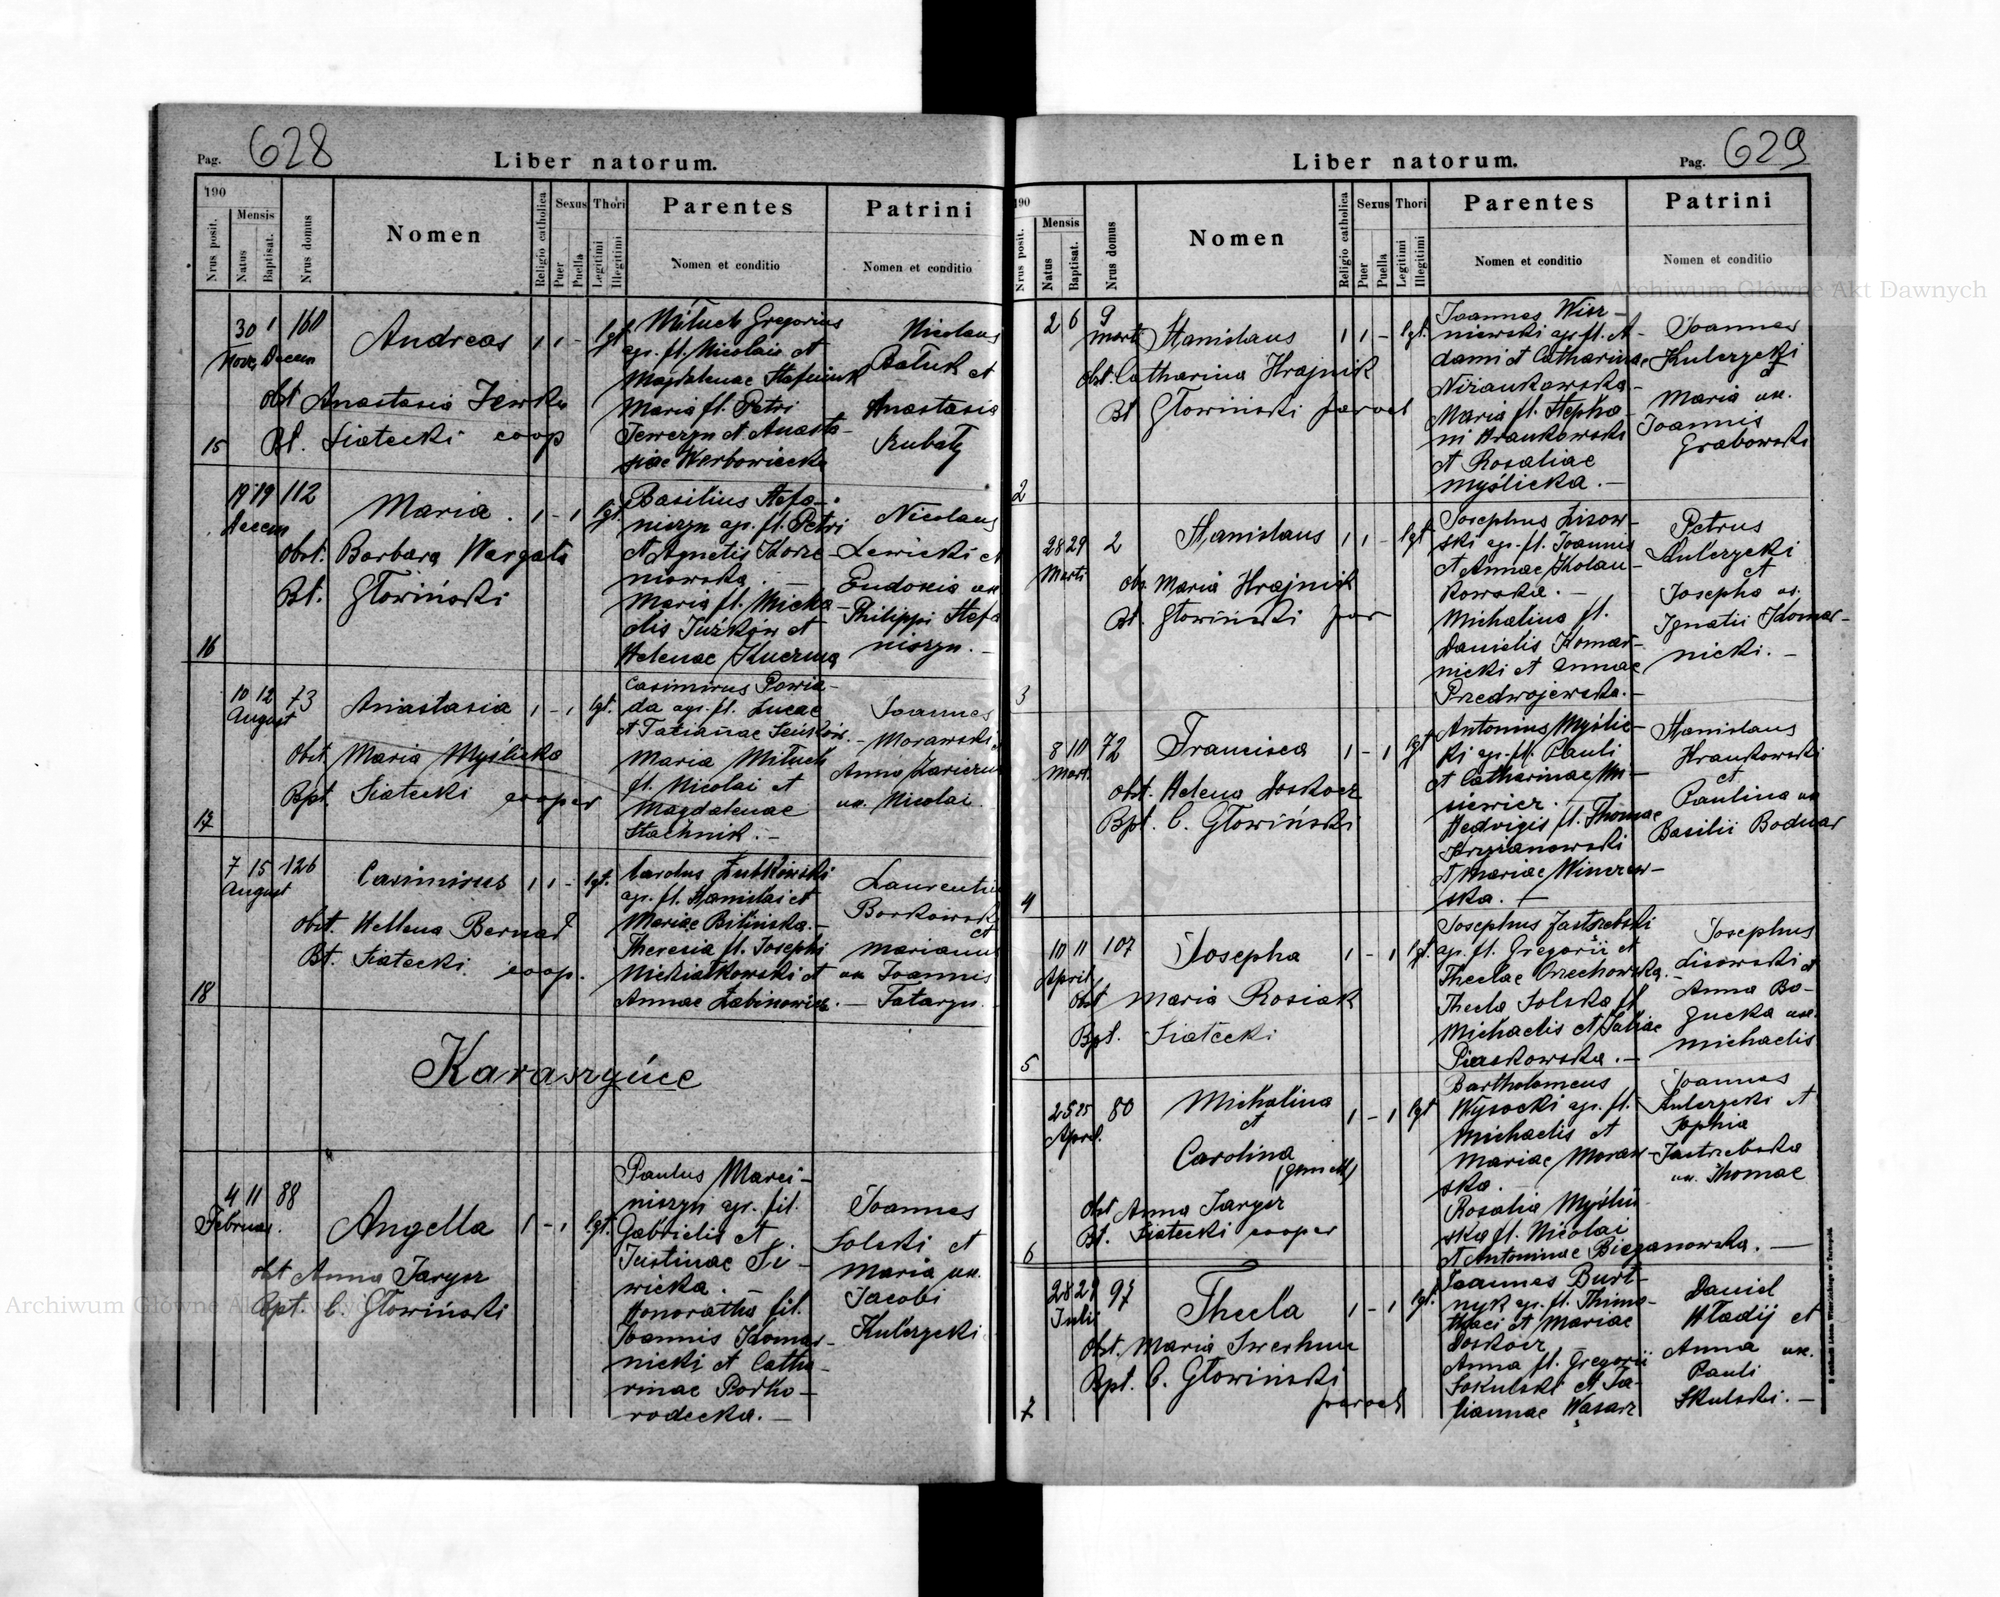 Pag. 628
Liber natorum.
190
Nrus posit.
Mensis
Natus
Baptisat.
Nrus domus
Nomen
Religio catholica
Sexus
Puer
Puella
Thori
Legitimi
Illegitimi
Parentes
Nomen et conditio
Patrini
Nomen et conditio
15
30 1 160
Novem Decem
Andreas 1 1 - lgt
obst Anastasia
Bt. Siatecki coop
Mituch Gregorius
agr. fl. Nicolai et
Magdalenae
Maria fl. Petri
et Anasta-
siae Werbowiecka
Nicolaus
et
Anastasia
16
19 19 112
Decem
Maria 1 - 1 lgt.
Obst. Barbara Wargata
Bt. Głowiński
Basilius Stefa-
niszyn agr. fl. Petri
et Agnetis
niowska. -
Maria fl. Micha-
elis Juźków et
Helenae Kuczma
Nicolaus
Lewicki et
Eudoxia ux
Philippi Stefa
niszyn. -
17
10 12 73
August
Anastasia 1 - 1 lgt.
Obst. Maria Myślicka
Bpt. Siatecki cooper
Casimirus Powia-
da agr. fl. Lucae
et Tatianae
Maria Mituch
fl. Nicolai et
Magdalenae
Stachnik. -
Joannes
Morawski
Anna
ux. Nicolai
18
7 15 126
August
Casimirus 1 1 - lgt.
obst. Hellena Bernat
Bt. Siatecki coop.
Carolus
agr. fl. Stanislai et
Mariae Bilinska. -
Theresia fl. Josephi
Michiałkowski et
Annae
Laurentiu
Borkowski
et
Marianna
ux Joannis
Tataryn. -
Karaszyńce
4 11 88
Februar.
Angella 1 - 1 lgt.
obst Anna Jarysz
Bpt. C. Głowiński
Paulus Marci-
niszyn agr. fil.
Gabrielis et
Justinae Si-
wicka. -
Honoratta fil.
Joannis Komar-
nicki et Catha-
rinae Podho-
rodecka. -
Joannes
Solski et
Maria ux.
Jacobi
Kulczycki
Liber natorum.
Pag. 629
190
Nrus posit.
Mensis
Natus
Baptisat.
Nrus domus
Nomen
Religio catholica
Sexus
Puer
Puella
Thori
Legitimi
Illegitimi
Parentes
Nomen et conditio
Patrini
Nomen et conditio
2
2 6 9
Marti
Stanislaus 1 1 - lgt.
Obst. Catharina Hrajnik
Bt Głowiński paroch
Joannes Wisz-
niewski agr. fl. A-
dami et Catharinae
Nizankowska -
Maria fl. Stepha-
ni Hrankowski
et Rosaliae
Myślicka. -
Joannes
Kulczycki
et
Maria ux.
Joannis
Grabowski
3
28 29 2
Marti
Stanislaus 1 1 - lgt
obs. Maria Hrajnik
Bt. Głowiński par
Josephus Lisow-
ski agr. fl. Joannis
et Annae
kowska. -
Michalina fl.
Danielis Komar-
nicki et Annae
Przedwojewska. -
Petrus
Kulczycki
et
Josepha ux.
Ignatii Komar-
nicki. -
4
8 10 72
Mart.
Francisca 1 - 1 lgt
obst. Helena Doskocz
Bpt. C. Głowiński
Antonius Myślic-
ki agr. fl. Pauli
et Catharinae Mi-
siewicz. -
Hedvigis fl. Thomae
Krzyzanowski
et Mariae Winczew-
ska. -
Stanislaus
Hrankowski
et
Paulina ux
Basilii Bodnar
5
10 11 107
April
Josepha 1 - 1 lgt.
obst Maria Rosiak
Bpt. Siatecki
Josephus Jastrzebski
agr. fl. Gregorii et
Theclae Orzechowska. -
Thecla Solska fl.
Michaelis et Juliae
Piaskowska. -
Josephus
Lisowski et
Anna Bo-
gucka ux.
Michaelis
6
25 25 80
April.
Michalina 1 - 1 lgt
et
Carolina
(gemelli)
Obst Anna Jarysz
Bt. Siatecki cooper
Bartholomeus
Wysocki agr. fl.
Michaelis et
Mariae Moraw-
ska. -
Rosalia Myślic
ska fl. Nicolai
et Antoninae Bieganowska. -
Joannes
Kulczycki et
Sophia
Jastrzebska
ux. Thomae
7
28 29 97
Julii
Thecla 1 - 1 lgt.
Obst. Maria Swerhun
Bpt. C. Głowiński
paroch
Joannes Burt-
nyk agr. fl. Thimo-
thaei et Mariae
Doskocz
Anna fl. Gregorii
Sokulski et Ta-
tiannae Wasarz
Daniel
Hladij et
Anna ux.
Pauli
Skulski. -
Archiwum Główne Akt Dawnych
Archiwum Główne Akt Dawnych